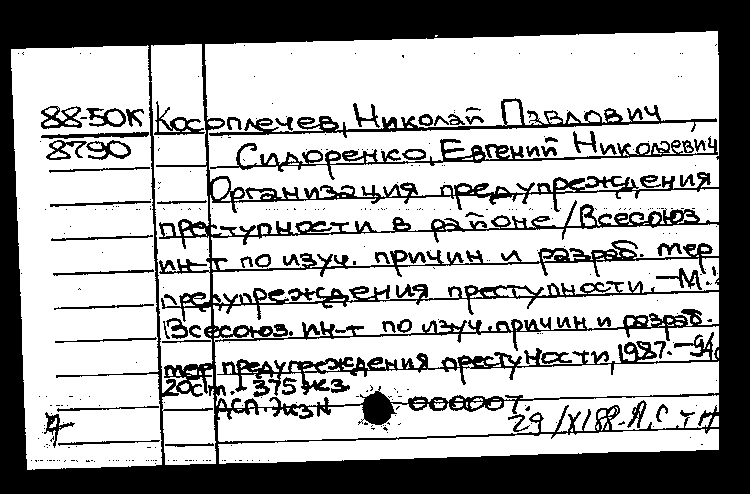 88-50К Косоплечев, Николай Павлович,
8790 Сидоренко, Евгений Николаевич
Организация предупреждения
преступности в районе / Всесоюз.
ин-т по изуч. причин и разраб. мер
предупреждения преступности. – М.:
Всесоюз. ин-т по изуч. причин и разраб.
мер предупреждения престуности, 1987. – 94с
20cm. – 375 экз.
АСП. Экз N 000007.
29/X188-А.С.